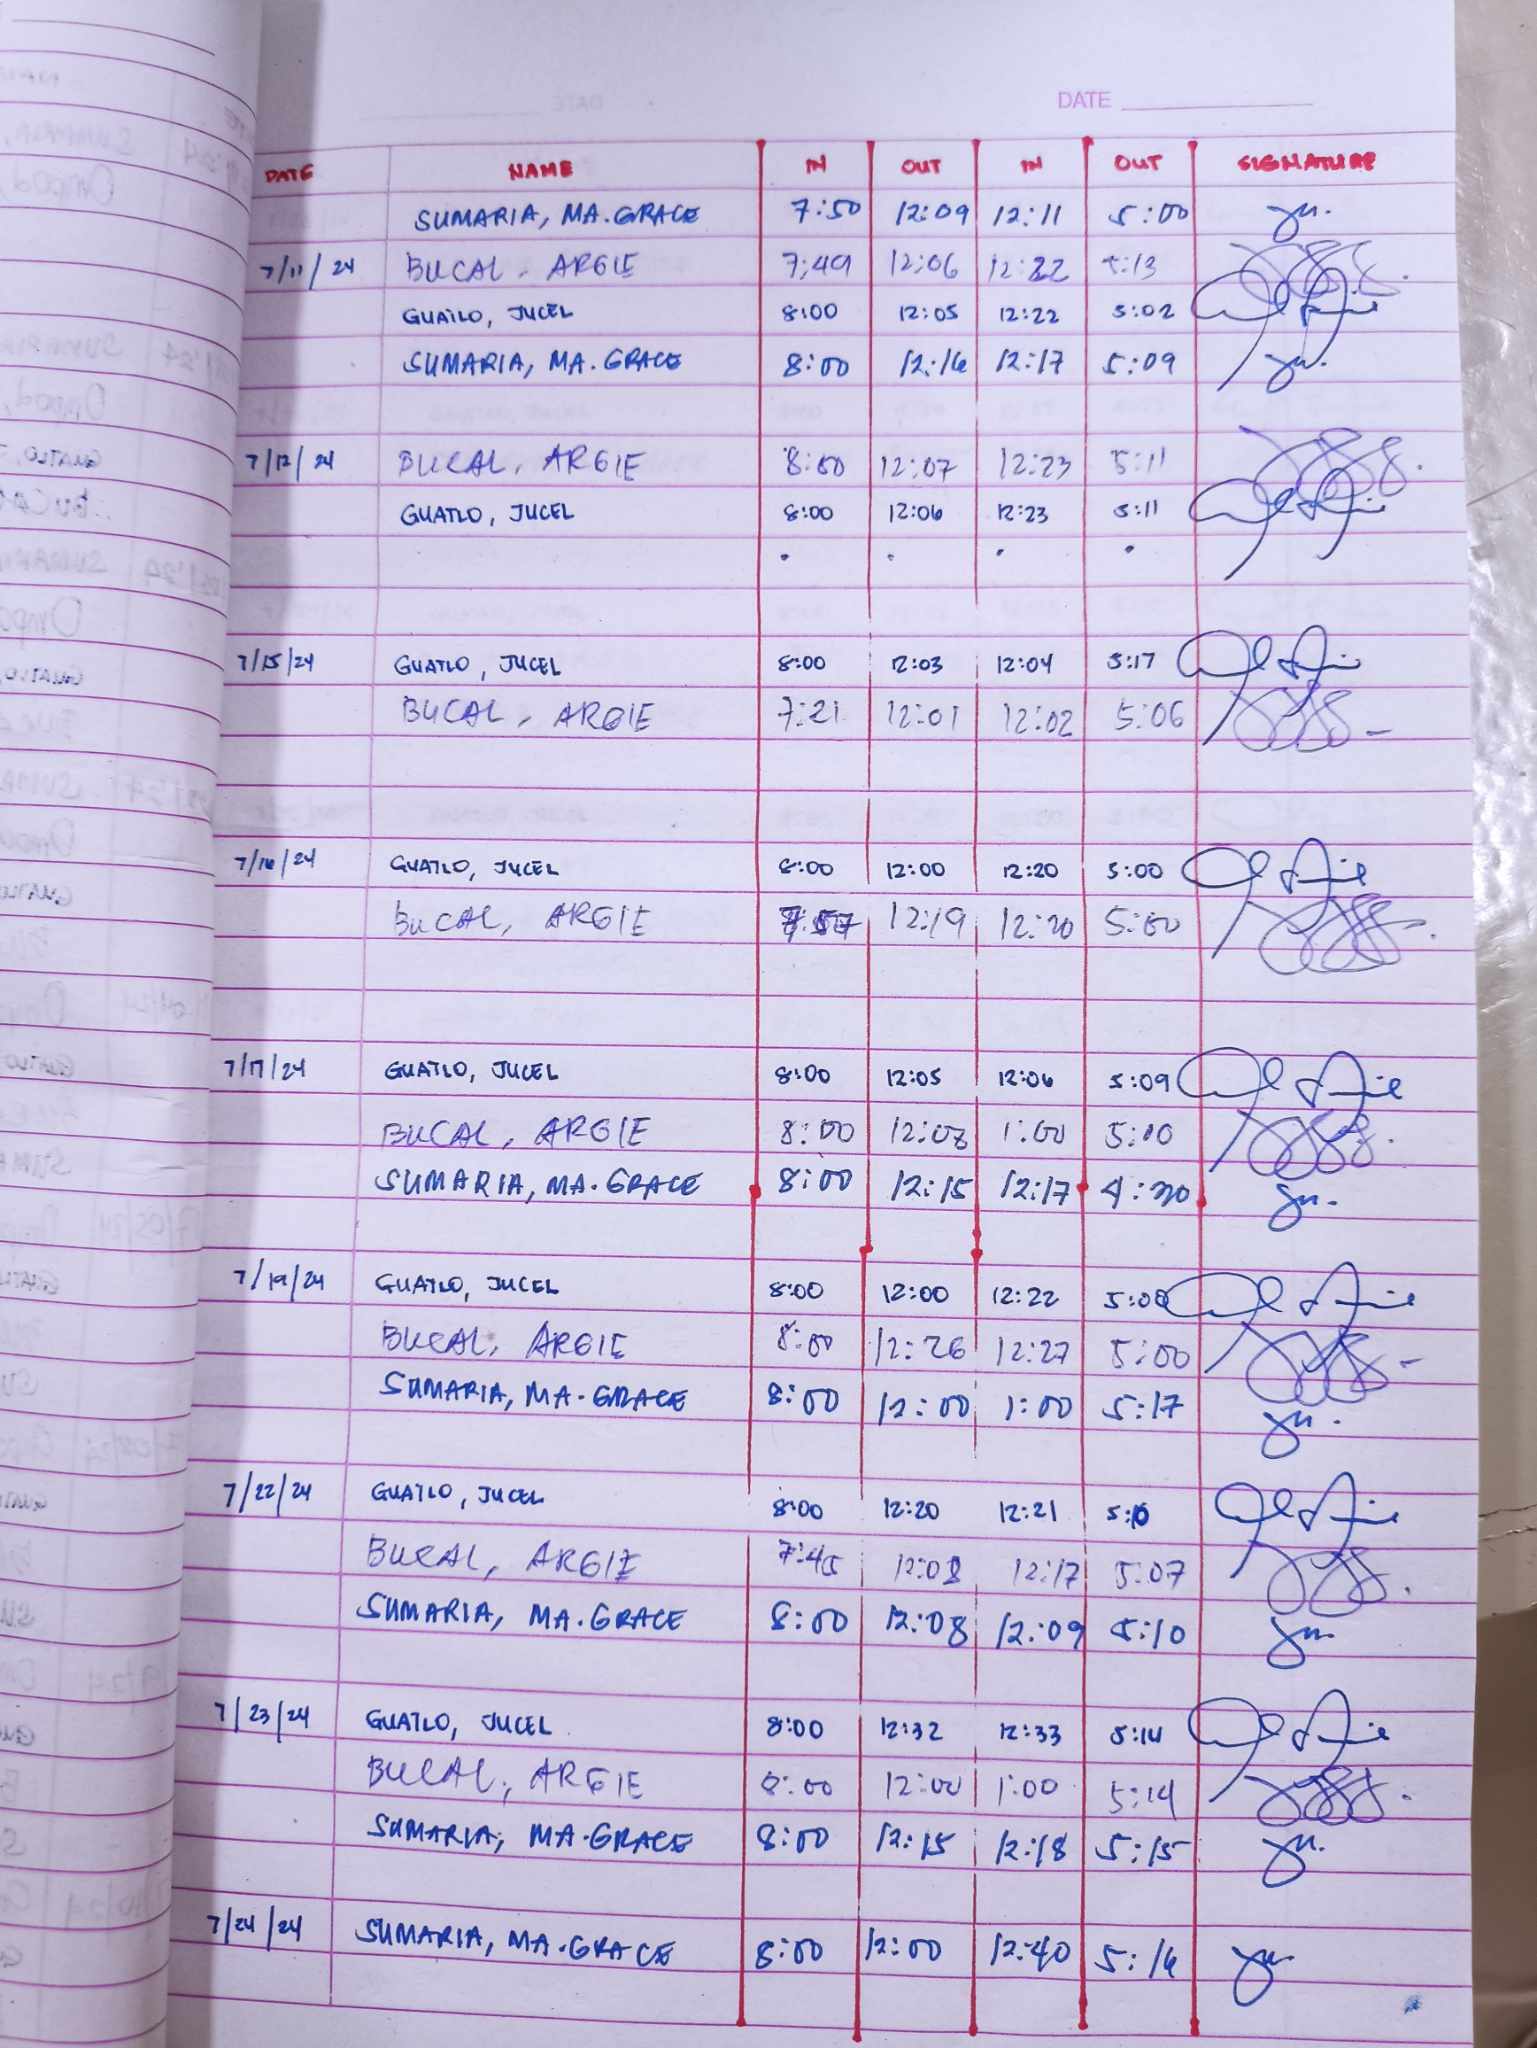 DATE
DATE NAME IN OUT IN OUT SIGNATURE
SUMARIA, MA. GRACE 7:50 12:09 12:11 5:00
7/11/24 BUCAL, ARGIE 7:49 12:06 12:22 5:13
GUATLO, JUCEL 8:00 12:05 12:22 5:02
SUMARIA, MA. GRACE 8:00 12:16 12:17 5:09
7/12/24 BUCAL, ARGIE 8:00 12:07 12:23 5:11
GUATLO, JUCEL 8:00 12:06 12:23 5:11
7/15/24 GUATLO, JUCEL 8:00 12:03 12:04 5:17
BUCAL, ARGIE 7:21 12:01 12:02 5:06
7/16/24 GUATLO, JUCEL 8:00 12:00 12:20 5:00
BUCAL, ARGIE 7:57 12:19 12:20 5:00
7/17/24 GUATLO, JUCEL 8:00 12:05 12:06 5:09
BUCAL, ARGIE 8:00 12:08 1:00 5:00
SUMARIA, MA. GRACE 8:00 12:15 12:17 4:30
7/19/24 GUATLO, JUCEL 8:00 12:00 12:22 5:08
BUCAL, ARGIE 8:00 12:26 12:27 5:00
SUMARIA, MA. GRACE 8:00 12:00 1:00 5:17
7/22/24 GUATLO, JUCEL 8:00 12:20 12:21
BUCAL, ARGIE 7:45 12:08 12:17 5:07
SUMARIA, MA. GRACE 8:00 12:08 12:09 5:10
7/23/24 GUATLO, JUCEL 8:00 12:32 12:33 5:14
BUCAL, ARGIE 8:00 12:00 1:00 5:14
SUMARIA, MA. GRACE 8:00 12:15 12:18 5:15
7/24/24 SUMARIA, MA. GRACE 8:00 12:00 12:40 5:16